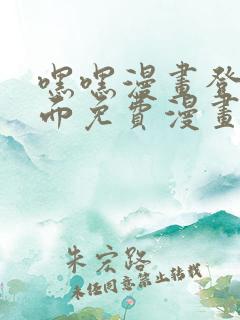 嘿嘿漫畫登
帀免費漫畫
朱宏路
未经同意禁止转载